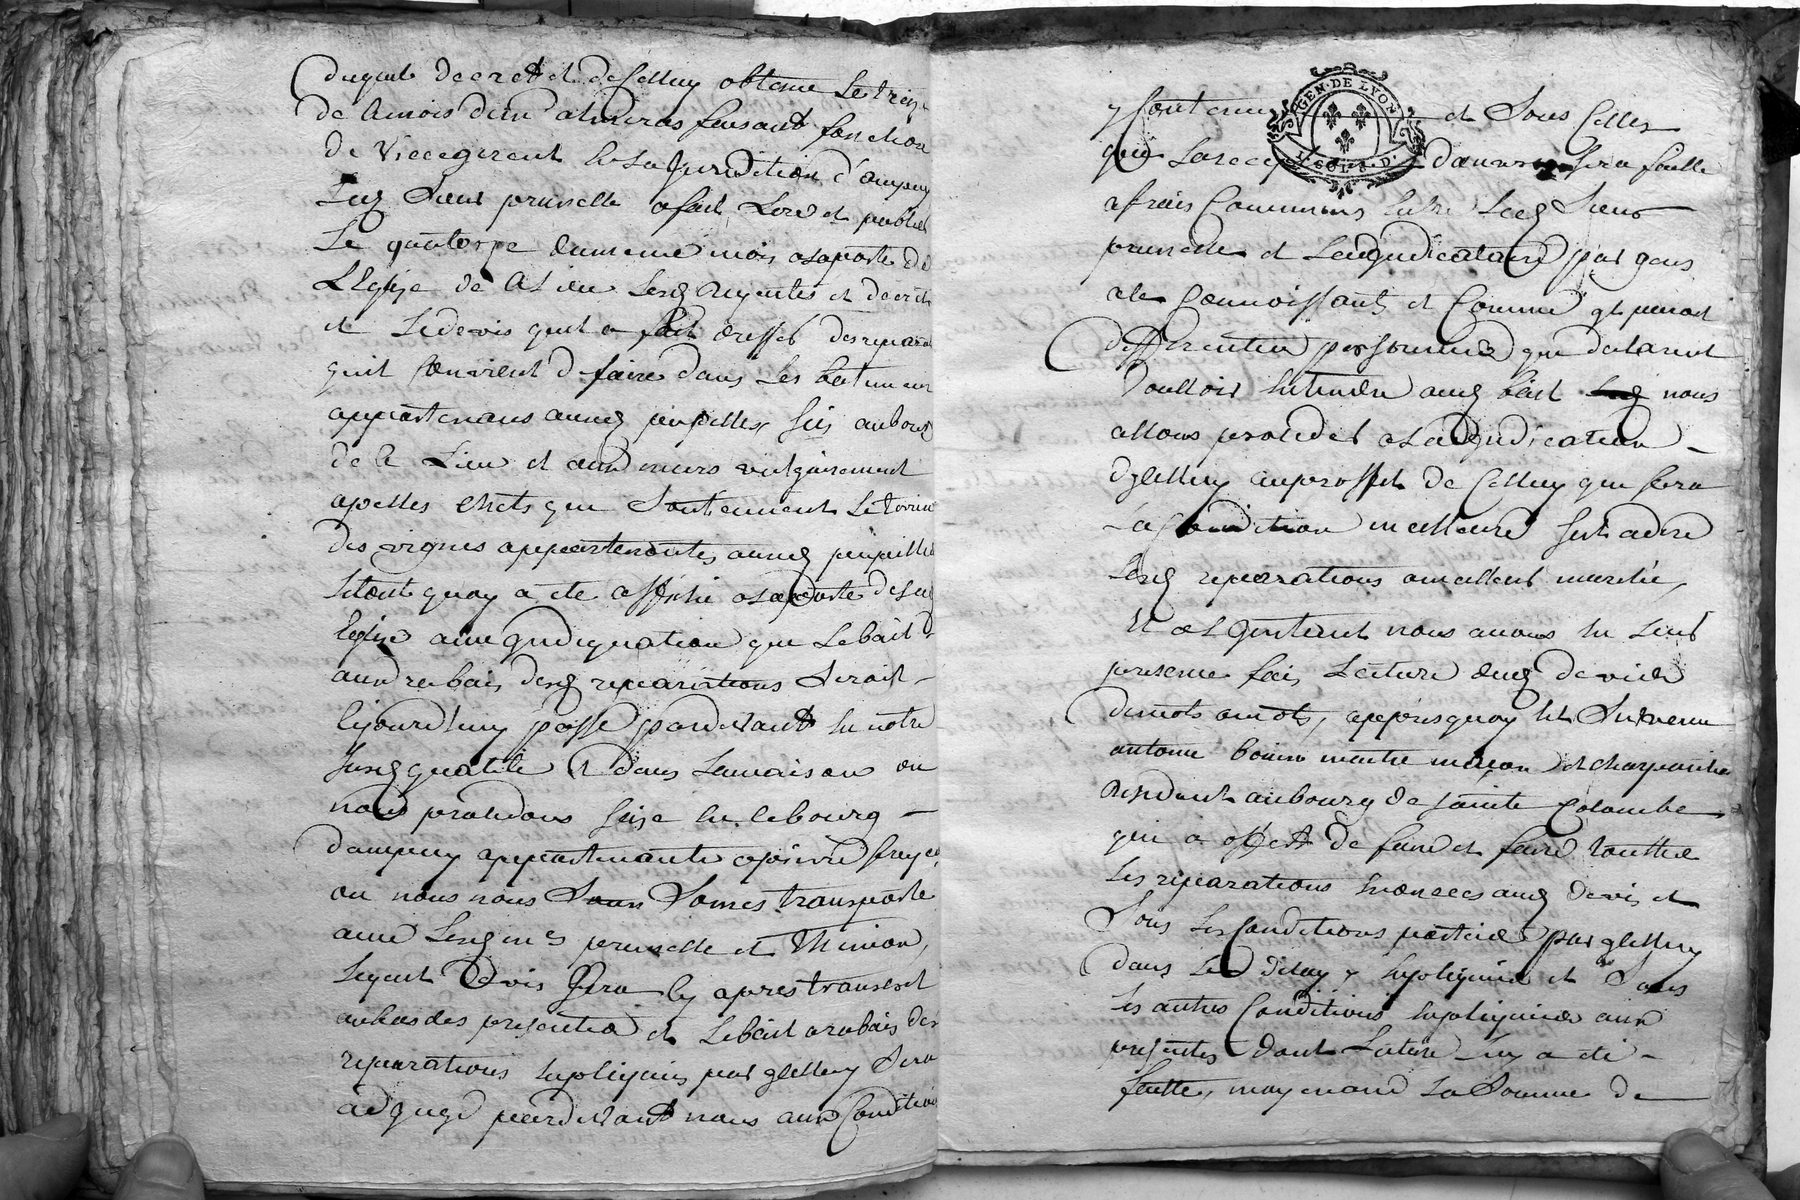 duquel decret et de celluy obtenu le treize
de ce mois dudit faisant fonction
de Vicegerent en la Juridiction d'ampuy
ledt Sieur prunelle a fait Lire et publier
Le quatorze du meme mois a la porte de
L'Eglise de ce Lieu lesdt requetes et decrets
et le devis quil a fait dresser des reparaons
quil convient de faire dans les batimens
appartenans auxdt pupilles sis au bourg
de ce Lieu et aux murs vulgairement
apelles chets qui soutiennent le terrein
des vignes appartenantes auxdt pupilles
le tout quoy a ete affiché a la porte de ladt
Eglise avec indiquation que le bail
aux rabais desdt reparations seroit
cejourdhuy passé pardevant en notre
susdt qualité et dans la maison ou
nous procedons size en ce bourg
dampuy appartenante a pierre
ou nous nous sommes transporté
avec lesdt mes prunelle et Thinion,
lequel devis sera cy apres transcrit
au bas des presentes et le bail a rabais des
reparations expliquées par icelluy sera
adjugé pardevant nous aux Conditions
y contenues et sous celles
que la recepte sera faitte
a frais communs entre ledt Sieur
prunelle et l'adjudicataire par gens
a ce connoissants et comme il paroit
differentes personnes qui declarent
vouloir entendre audt bail nous
allons proceder a l'adjudication
d'icelluy au proffit de celluy qui fera
la condition meilleure c'est a dire
lesdt reparations a meilleur marché,
Et a l'instant nous avons en leur
presence fait lecture dudt devis
de mots a mots, apprès quoy est survenu
antoine maitre maçon et charpentier
residant au bourg de sainte Colombe
qui a offert de faire et faire touttes
les reparations enoncées audt devis et
sous les conditions portées par icelluy
dans le delay y expliquée et sous
les autres conditions expliquées aux
presentes dont lecture luy a eté
faitte, moyenant la somme de
GEN. DE LYON